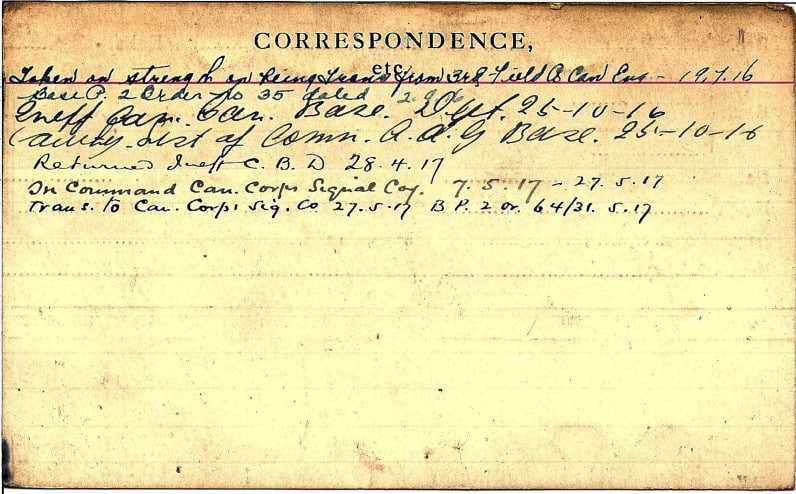 CORRESPONDENCE,
etc.
Taken on strength on being trans from 3rd Field Can Eng - 19.7.16
Base P. 2 Order No 35 dated
Can. Base. Dept. 25-10-16
List of Comn. A.A.G Base. 25-10-16
Returned Ineff C. B. D 28.4.17
In Command Can. Corps Signal Coy. 7.5.17 - 27.5.17
Trans. to Can. Corps Sig. Co 27.5.17 B P. 2 or. 64/31.5.17